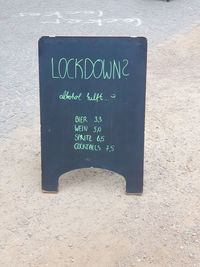 LOCKDOWN?
alkohol hilft...
BIER 3,3
WEIN 5,0
SPRITZ 6,5
COCKTAILS 7,5